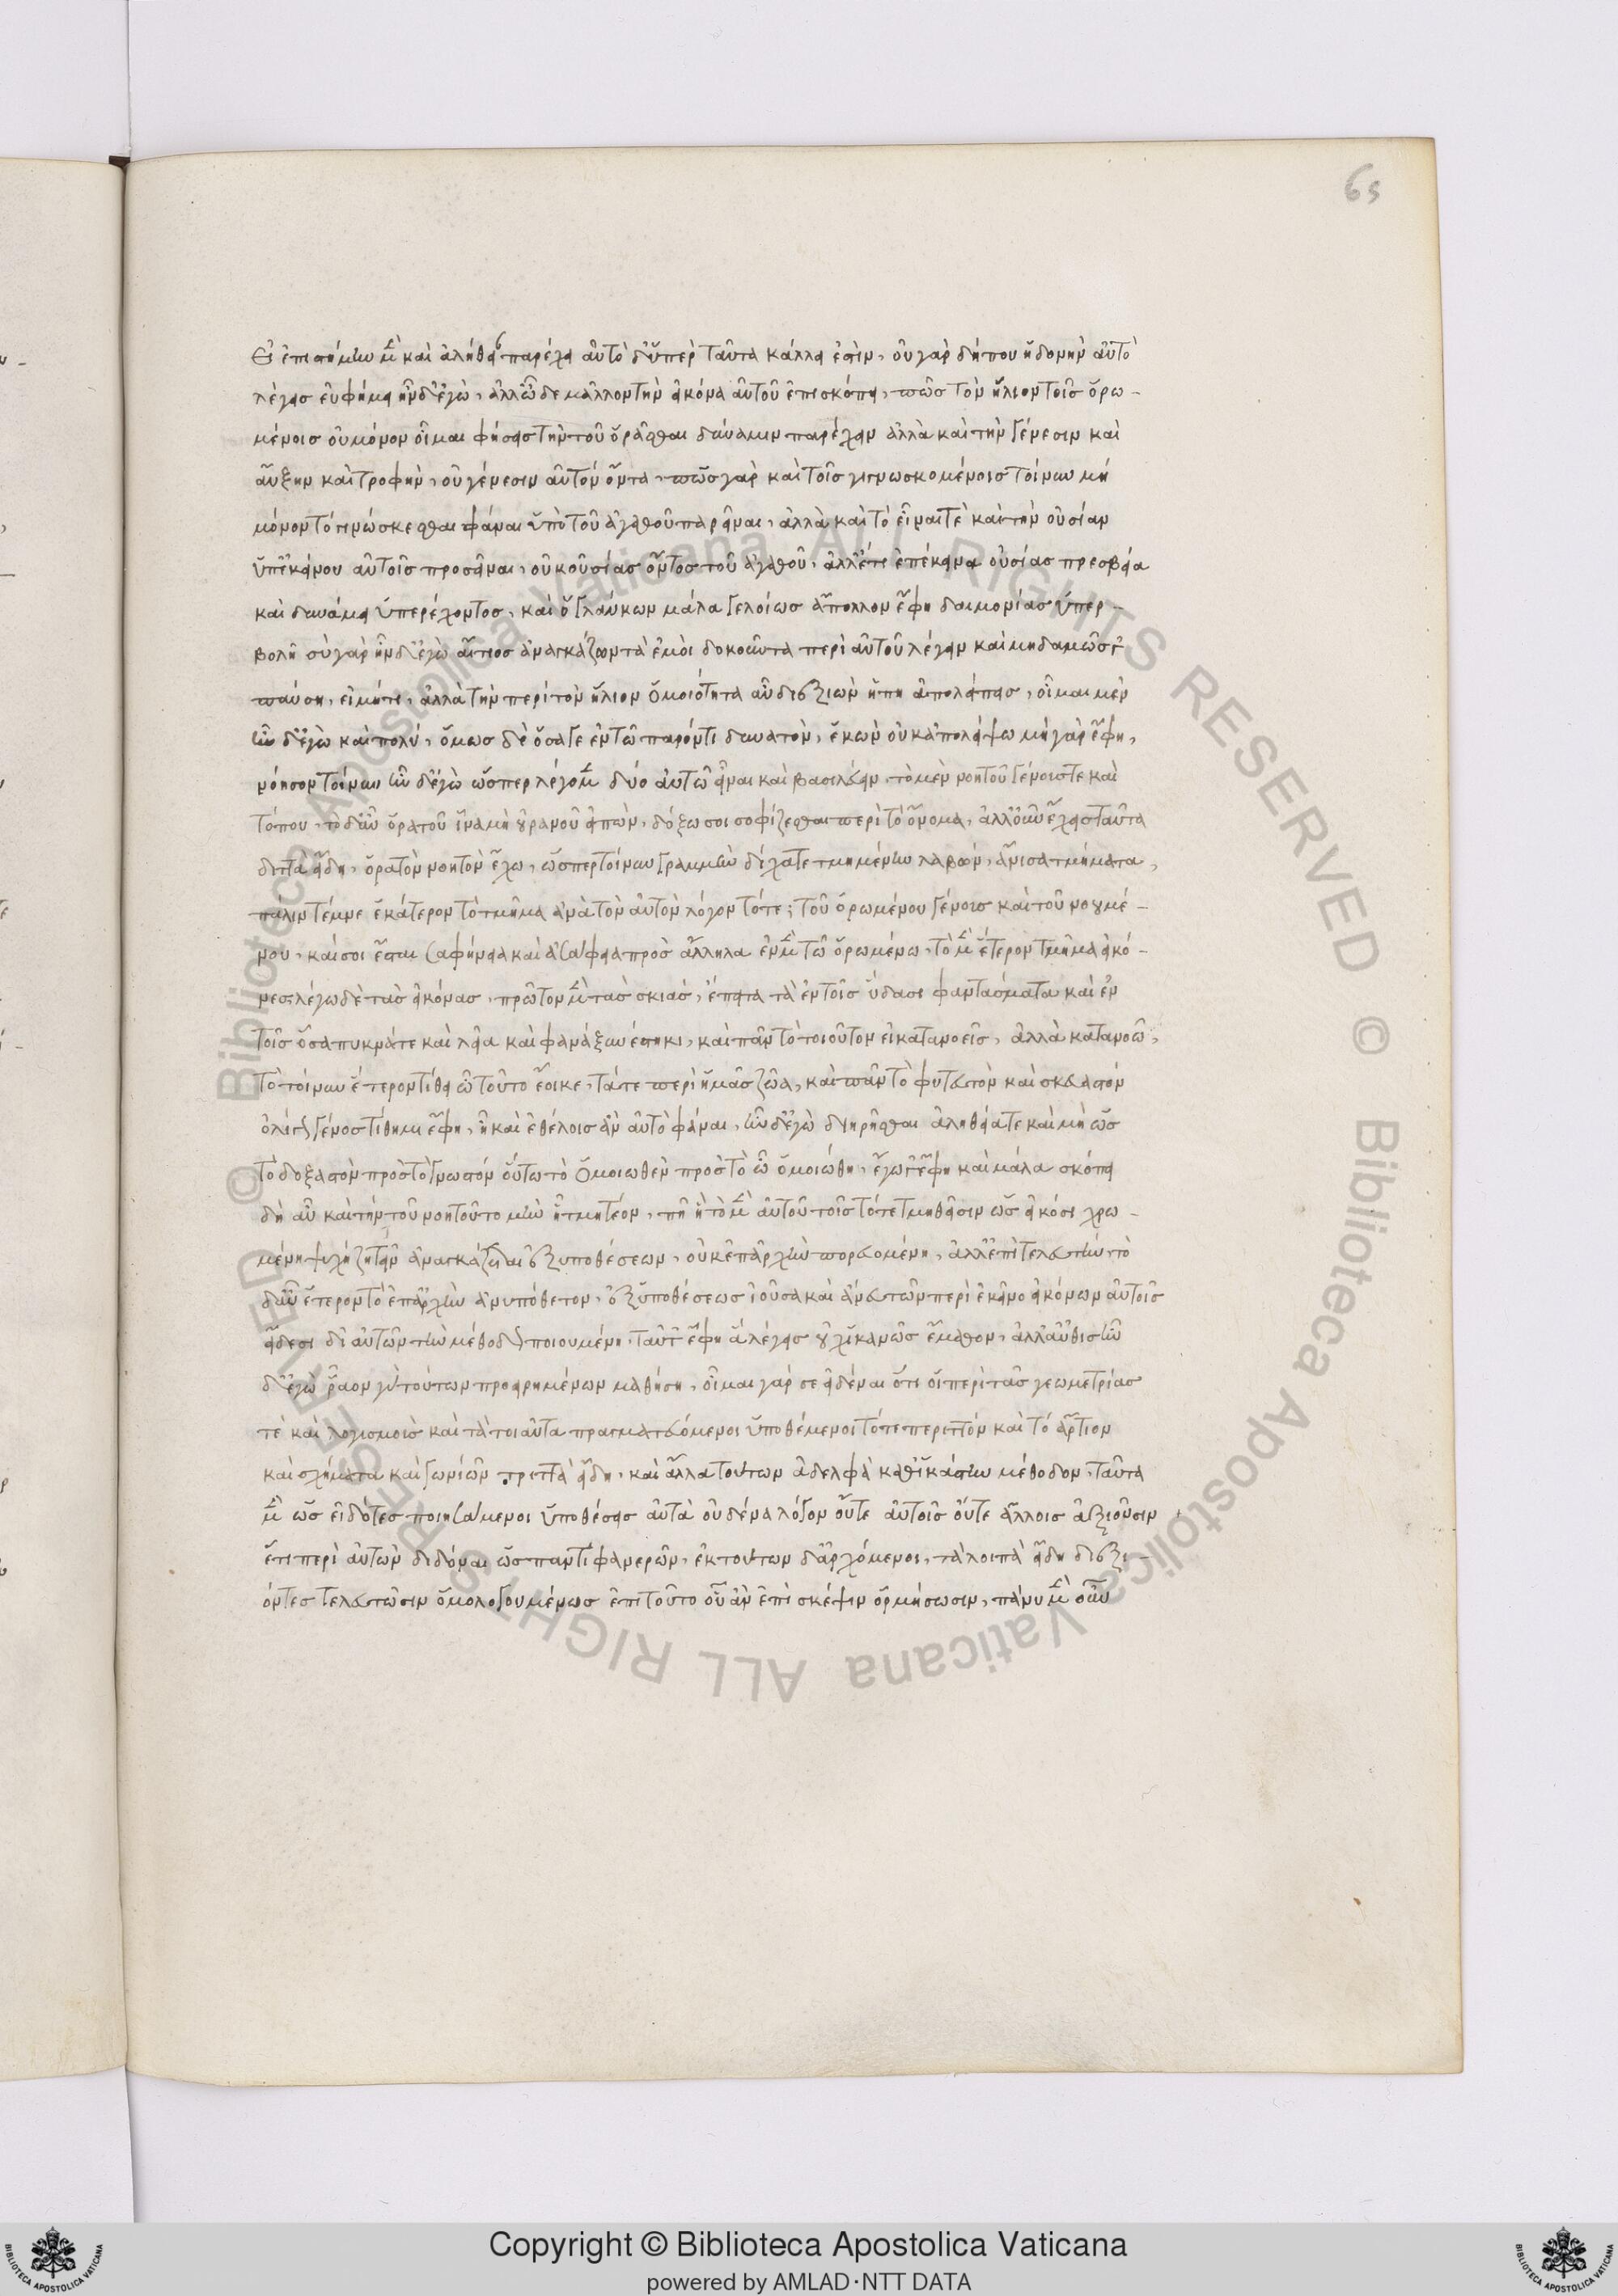 65
Εἰ ἐπιστήμην μὲν καὶ ἀλήθειαν παρέχει αὐτὸ δ' ὑπὲρ ταῦτα κάλλει ἐστὶν, οὐ γὰρ δήπου ἡδονὴν αὐτὸ
λέγεισ εὐφήμει ἦν δ' ἐγὼ, ἀλλ' ὧδε μᾶλλον τὴν εἰκόνα αὐτοῦ ἐπισκόπει, πῶσ τὸν ἥλιον τοῖσ ὁρω-
μένοισ οὐ μόνον οἶμαι φήσεισ τὴν τοῦ ὁρᾶσθαι δύναμιν παρέχειν ἀλλὰ καὶ τὴν γένεσιν καὶ
αὔξην καὶ τροφὴν, οὐ γένεσιν αὐτὸν ὄντα, πῶσ γὰρ καὶ τοῖσ γιγνωσκομένοισ τοίνυν μὴ
μόνον τὸ γινώσκεσθαι φάναι ὑπὸ τοῦ ἀγαθοῦ παρεῖναι, ἀλλὰ καὶ τὸ εἶναί τε καὶ τὴν οὐσίαν
ὑπ' ἐκείνου αὐτοῖσ προσεῖναι, οὐκ οὐσίασ ὄντοσ τοῦ ἀγαθοῦ, ἀλλ' ἔτι ἐπέκεινα οὐσίασ πρεσβεία
καὶ δυνάμει ὑπερέχοντοσ, καὶ ὁ γλαύκων μάλα γελοίωσ ἄπολλον ἔφη δαιμονίασ ὑπερ-
βολῆ σὺ γὰρ ἦν δ' ἐγὼ αἴτιοσ ἀναγκάζων τὰ ἐμοὶ δοκοῦντα περὶ αὐτοῦ λέγειν καὶ μηδαμῶσ γ'
παύση, εἰ μήτι, ἀλλὰ τὴν περὶ τὸν ἥλιον ὁμοιότητα αὖ διεξιὼν ἤπη ἀπολείπεισ, οἶμαι μὲν
ἦν δ' ἐγὼ καὶ πολύ, ὅμωσ δὲ ὅσα γε ἐν τῶ παρόντι δυνατὸν, ἑκὼν οὐκ ἀπολείψω μὴ γὰρ ἔφη,
νόησον τοίνυν ἦν δ' ἐγὼ ὥσπερ λέγομεν δύο αὐτὼ εἶναι καὶ βασιλεύειν, τὸ μὲν νοητοῦ γένουσ τε καὶ
τόπου, τὸ δ' αὖ ὁρατοῦ ἵνα μὴ οὐρανοῦ εἰπὼν, δόξω σοι σοφίζεσθαι περὶ τὸ ὄνομα, ἀλλ' οὖν ἔχεισ ταῦτα
διττὰ εἴδη, ὁρατὸν νοητὸν ἔχω, ὥσπερ τοίνυν γραμμὴν δίχα τετμημένην λαβὼν, ἄνισα τμήματα,
πάλιν τέμνε ἑκάτερον τὸ τμῆμα ἀνὰ τὸν αὐτὸν λόγον τότε; τοῦ ὁρωμένου γένουσ καὶ τοῦ νουμέ-
νου, καί σοι ἔσται σαφήνεια καὶ ἀσάφεια πρὸσ ἄλληλα ἐν μὲν τῶ ὁρωμένω, τὸ μὲν ἕτερον τμῆμα εἰκό-
νεσ, λέγω δὲ τὰσ εἰκόνασ, πρῶτον μὲν τὰσ σκιάσ, ἔπειτα τὰ ἐν τοῖσ ὕδασι φαντάσματα καὶ ἐν
τοῖσ ὅσα πυκνά τε καὶ λεῖα καὶ φανὰ ξυνέστηκι, καὶ πᾶν τὸ τοιοῦτον εἰ κατανοεῖσ, ἀλλὰ κατανοῶ,
τὸ τοίνυν ἕτερον τίθει ὧ τοῦτο ἔοικε, τά τε περὶ ἡμᾶσ ζῶα, καὶ πᾶν τὸ φυτευτὸν καὶ σκευαστόν
ὅλον γένοσ τίθημι ἔφη, ἦ καὶ ἐθέλοισ ἂν αὐτὸ φάναι, ἦν δ' ἐγὼ διηρῆσθαι ἀληθεία τε καὶ μὴ ὡσ
τὸ δοξαστὸν πρὸσ τὸ γνωστόν οὕτω τὸ ὁμοιωθὲν πρὸσ τὸ ὧ ὡμοιώθη, ἔγωγ' ἔφη καὶ μάλα σκόπει
δὴ αὖ καὶ τὴν τοῦ νοητοῦ τομὴν ἧ τμητέον, πῆ ἧ τὸ μὲν αὐτοῦ τοῖσ τότε τμηθεῖσιν ὡσ εἰκόσι χρω-
μένη ψυχὴ ζητεῖν ἀναγκάζεται ἐξ ὑποθέσεων, οὐκ ἐπ' ἀρχὴν πορευομένη, ἀλλ' ἐπὶ τελευτὴν, τὸ
δ' αὖ ἕτερον τὸ ἐπ' ἀρχὴν ἀνυπόθετον, ἐξ ὑποθέσεωσ ἰοῦσα καὶ ἄνευ τῶν περὶ ἐκεῖνο εἰκόνων αὐτοῖσ
εἴδεσι δι' αὐτῶν τὴν μέθοδον ποιουμένη, ταῦτ' ἔφη ἃ λέγεισ οὐχ ἱκανῶσ ἔμαθον, ἀλλ' αὖθισ ἦν
δ' ἐγὼ ῥᾶον γὰρ τούτων προειρημένων μαθήση, οἶμαι γάρ σε εἰδέναι ὅτι οἱ περὶ τὰσ γεωμετρίασ
τὲ καὶ λογισμοὺσ καὶ τὰ τοιαῦτα πραγματευόμενοι ὑποθέμενοι τό τε περιττὸν καὶ τὸ ἄρτιον
καὶ σχήματα καὶ γωνιῶν τριττὰ εἴδη, καὶ ἄλλα τούτων ἀδελφὰ καθ' ἑκάστην μέθοδον, ταῦτα
μὲν ὡσ εἰδότεσ ποιησάμενοι ὑποθέσεισ αὐτὰ οὐδένα λόγον οὔτε αὑτοῖσ οὔτε ἄλλοισ ἀξιοῦσιν
ἔτι περὶ αὐτῶν διδόναι ὡσ παντὶ φανερῶν, ἐκ τούτων δ' ἀρχόμενοι, τὰ λοιπὰ ἤδη διεξι-
όντεσ τελευτῶσιν ὁμολογουμένωσ ἐπὶ τοῦτο οὗ ἂν ἐπὶ σκέψιν ὁρμήσωσιν, πάνυ μὲν οὖν
© Biblioteca Apostolica Vaticana ALL RIGHTS RESERVED © Biblioteca Apostolica Vaticana ALL RIGHTS RESERVED
Copyright © Biblioteca Apostolica Vaticana
powered by AMLAD·NTT DATA
BIBLIOTECA APOSTOLICA VATICANA
BIBLIOTECA APOSTOLICA VATICANA